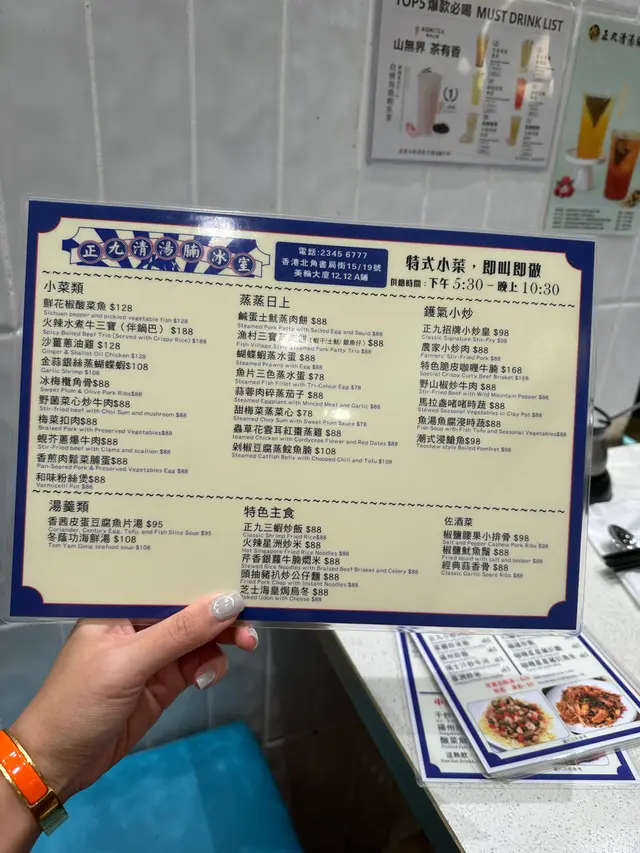 TOP5 爆款必喝 MUST DRINK LIST
山無界 茶有香
正九清湯腩冰室
電話:2345 6777
香港北角書局街15/19號
美輪大廈12,12A鋪
特式小菜，即叫即做
供應時間：下午5:30－晚上10:30
小菜類
鮮花椒酸菜魚 $128
Sichuan pepper and pickled vegetable fish $128
火辣水煮牛三寶（伴鍋巴）$188
Spicy Boiled Beef Trio (Served with Crispy Rice) $188
沙薑蔥油雞 $128
Ginger & Shallot Oil Chicken $128
金蒜銀絲蒸蝴蝶蝦$108
Garlic Shrimp $108
冰梅欖角骨$88
Sweet Plum & Olive Pork Ribs$88
野菌菜心炒牛肉$88
Stir-fried beef with Choi Sum and mushroom $88
梅菜扣肉$88
Braised Pork with Preserved Vegetables$88
蜆芥蔥爆牛肉$88
Stir-fried Beef with Clams and scallion $88
香煎肉鬆菜脯蛋$88
Pan-Seared Pork & Preserved Vegetables Egg $88
和味粉絲煲$88
Vermicelli Pot $88
蒸蒸日上
鹹蛋土魷蒸肉餅 $88
Steamed Pork Patty with Salted Egg and Squid $88
漁村三寶蒸肉餅
$88
Fish Village Style Steamed Pork Patty Trio $88
蝴蝶蝦蒸水蛋 $88
Steamed Prawns with Egg $88
魚片三色蒸水蛋 $78
Steamed Fish Fillet with Tri-Colour Egg $78
蒜蓉肉碎蒸茄子 $88
Steamed Eggplant with Minced Meat and Garlic $88
甜梅菜蒸菜心 $78
Steamed Choy Sum with Sweet Plum Sauce $78
蟲草花雲耳紅棗蒸雞 $88
teamed Chicken with Cordyceps Flower and Red Dates $88
剁椒豆腐蒸鯇魚腩 $108
Steamed Catfish Belly with Chopped Chili and Tofu $108
鑊氣小炒
正九招牌小炒皇 $98
Classic Signature Stir-Fry $98
農家小炒肉 $88
Farmers' Stir-Fried Pork $88
特色脆皮咖喱牛腩 $168
Special Crispy Curry Beef Brisket $168
野山椒炒牛肉 $88
Stir-Fried Beef with Wild Mountain Pepper $88
馬拉盞啫啫時蔬 $88
Stewed Seasonal Vegetables in Clay Pot $88
魚湯魚腐浸時蔬$88
Fish Soup with Fish Tofu and Seasonal Vegetables$88
潮式浸鱠魚$98
Teochew-style Boiled Pomfret $98
湯羹類
香茜皮蛋豆腐魚片湯 $95
Coriander, Century Egg, Tofu, and Fish Slice Soup $95
冬蔭功海鮮湯 $108
Tom Yam Gong seafood soup $108
特色主食
正九三蝦炒飯 $88
Classic Shrimp Fried Rice$88
火辣星洲炒米 $88
Hot Singapore Fried Rice Noodles $88
芹香銀蘿牛腩燜米 $88
Stewed Rice Noodles with Braised Beef Brisket and Celery $88
頭抽豬扒炒公仔麵 $88
Fried Pork Chop with Instant Noodles $88
芝士海皇焗烏冬 $88
Baked Udon with Cheese $88
佐酒菜
椒鹽腰果小排骨 $98
Salt and Pepper Cashew Pork Ribs $98
椒鹽魷魚鬚 $88
Fried squid with salt and pepper $88
經典蒜香骨 $88
Classic Garlic Spare Ribs $88